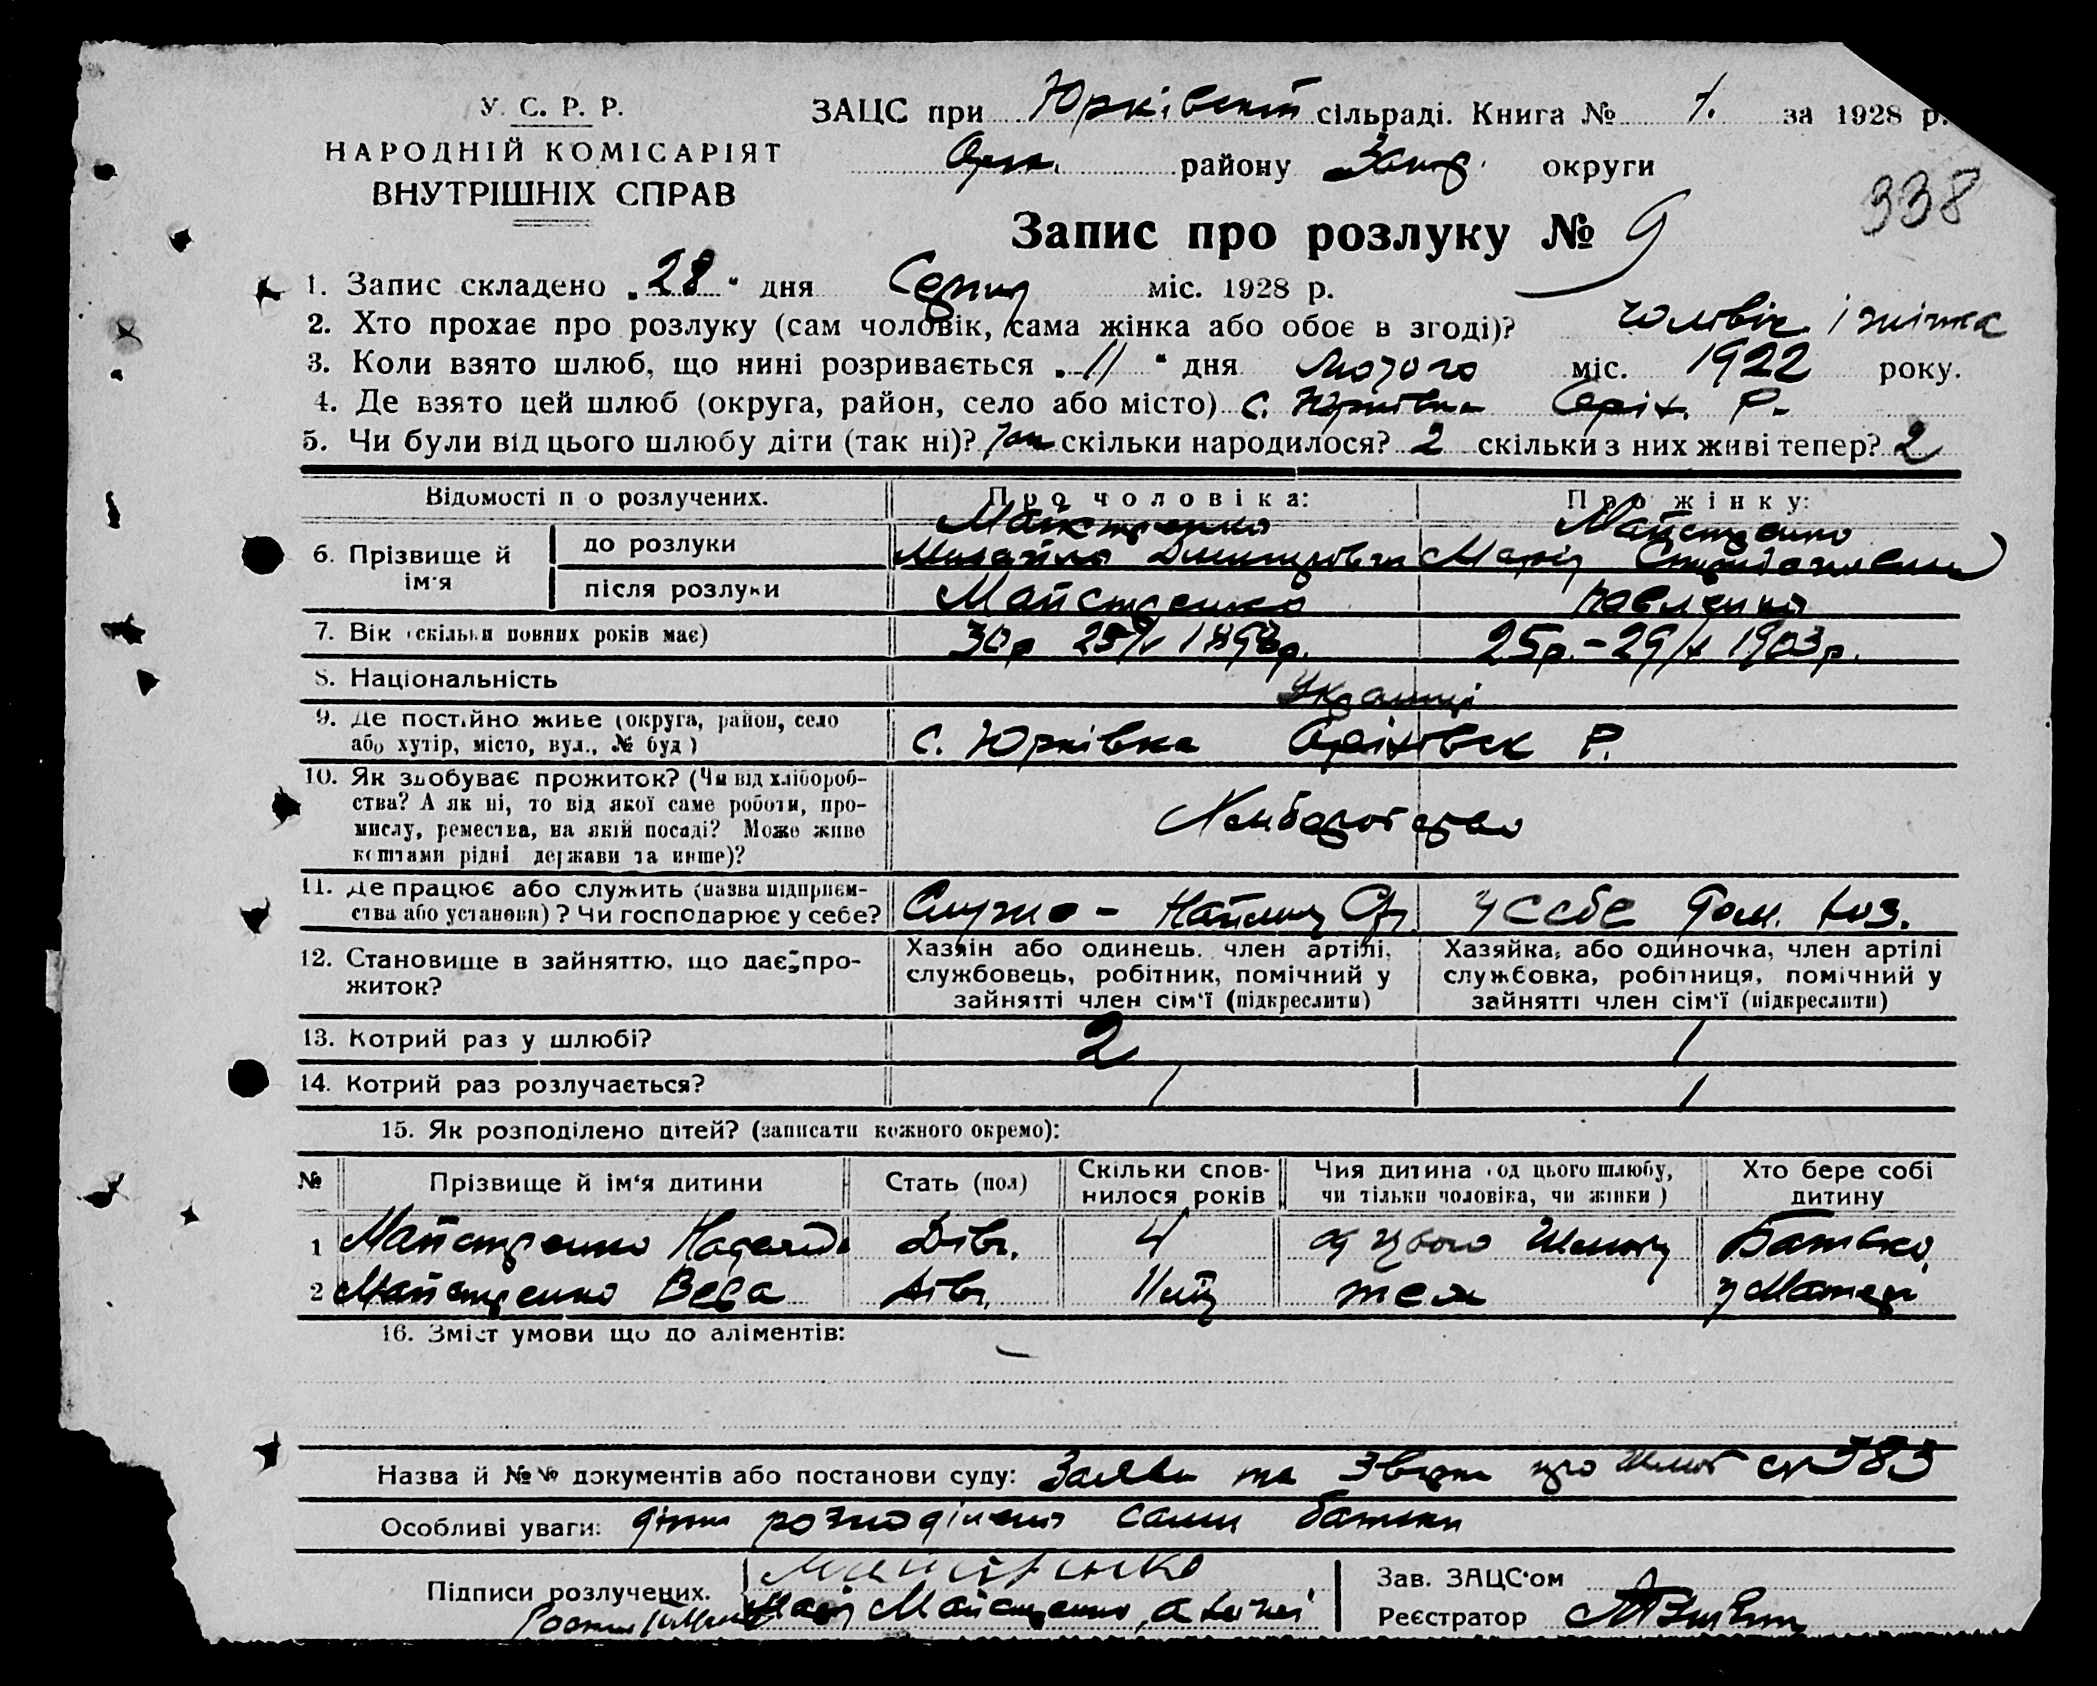 У. С. Р. Р.
НАРОДНІЙ КОМІСАРІЯТ
ВНУТРІШНІХ СПРАВ
ЗАЦС при Юрківській сільраді. Книга № 1. за 1928 р.
Оріх. району Запор. округи
338
Запис про розлуку № 9
1. Запис складено „28“ дня Серпня міс. 1928 р.
2. Хто прохає про розлуку (сам чоловік, сама жінка або обоє в згоді)? чоловік і жінка
3. Коли взято шлюб, що нині розривається „11“ дня Лютого міс. 1922 року.
4. Де взято цей шлюб (округа, район, село або місто) с. Юрківка Оріх. Р.
5. Чи були від цього шлюбу діти (так ні)? так скільки народилося? 2 скільки з них живі тепер? 2
Відомості п о розлучених. Про чоловіка: Про жінку:
6. Прізвище й ім'я
до розлуки Майстренко Михайло Дмитрович Майстренко Марія Спиридоновна
після розлуки Майстренко Павленко
7. Вік (скільки повних років має) 30р 1898р. 25р. - 29/ 1903р.
8. Національність Українці
9. Де постійно живе (округа, район, село
або хутір, місто, вул., № буд) с. Юрківка Оріховск Р.
10. Як здобуває прожиток? (Чи від хлібороб-
ства? А як ні, то від якої саме роботи, про-
мислу, ремества, на якій посаді? Може живе
коштами рідні держави та инше)?
Хліборобство
11. Де працює або служить (назва підприєм-
ства або установи)? Чи господарює у себе? у себе дом. хоз.
12. Становище в зайняттю, що дає про-
житок?
Хазяін або одинець. член артілі,
службовець, робітник, помічний у
зайнятті член сім'ї (підкреслити)
Хазяйка, або одиночка, член артілі
службовка, робітниця, помічний у
зайнятті член сім'ї (підкреслити)
13. Котрий раз у шлюбі? 2 1
14. Котрий раз розлучається? 1 1
15. Як розподілено дітей? (записати кожного окремо):
№ Прізвище й ім'я дитини Стать (пол) Скільки спов-
нилося років Чия дитина (од цього шлюбу,
чи тільки чоловіка, чи жінки) Хто бере собі
дитину
1 Майстренко Надежда Дівч. 4 од цього Шлюбу Батько
2 Майстренко Вера Дівч. теж у Матері
16. Зміст умови що до аліментів: –
Назва й №№ документів або постанови суду: Заява та про Шлюб
Особливі уваги: діти розподілені самі батьки
Підписи розлучених. Майстренко
Марія Майстренко, а
Зав. ЗАЦС'ом
Реєстратор